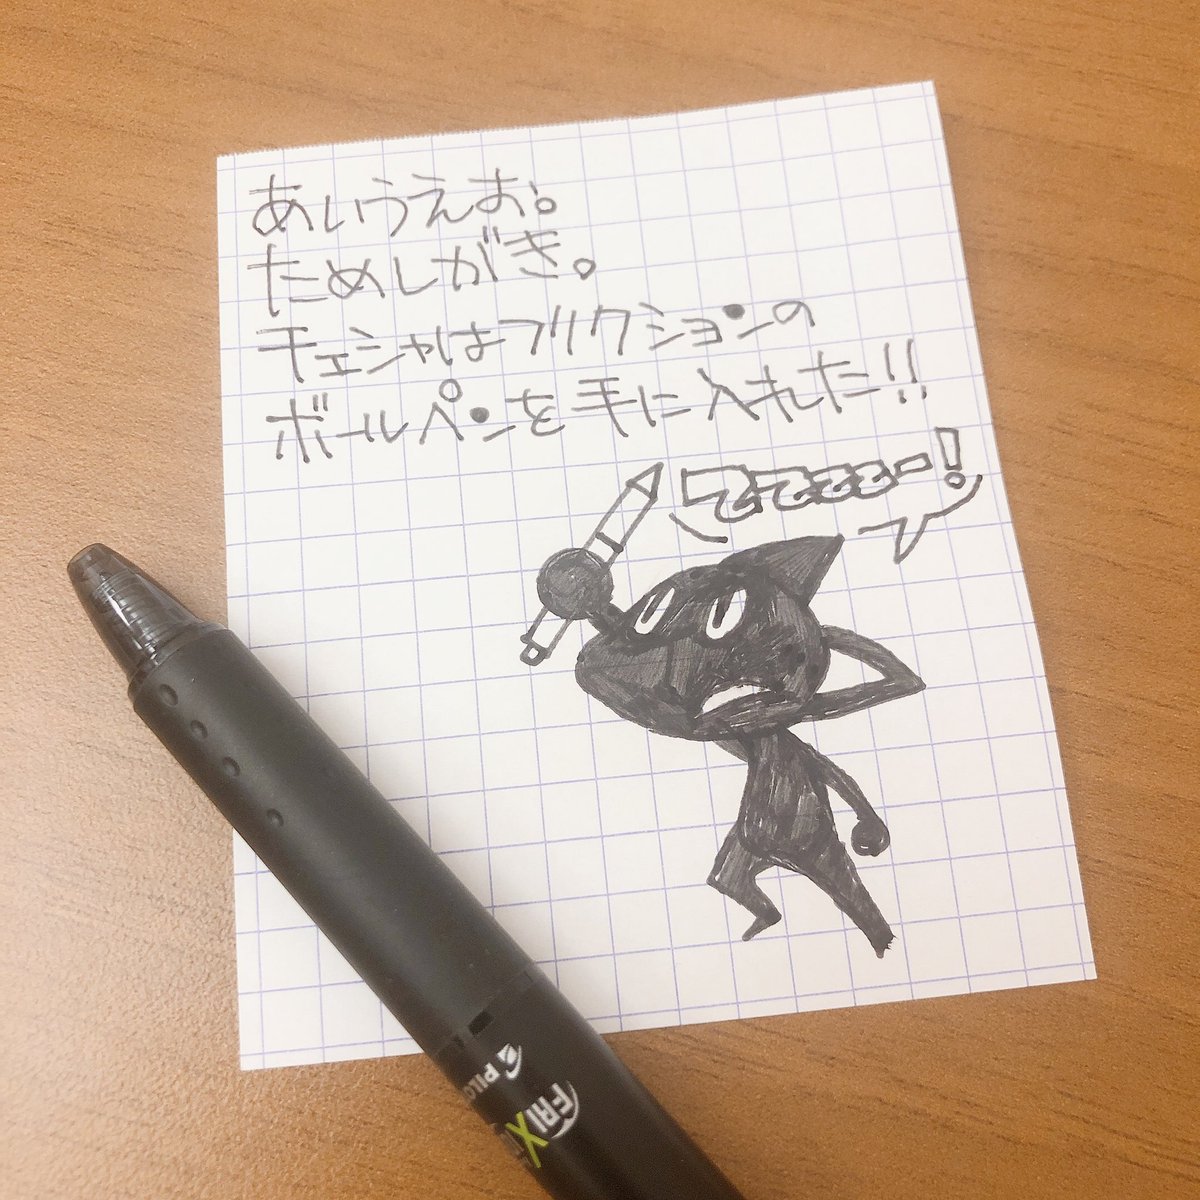 あいうえお。
ためしがき。
チェシャはフリクションの
ボールペンを手に入れた!!
PILO
FRIX